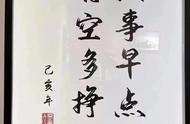 事早点
空多挣
己亥年